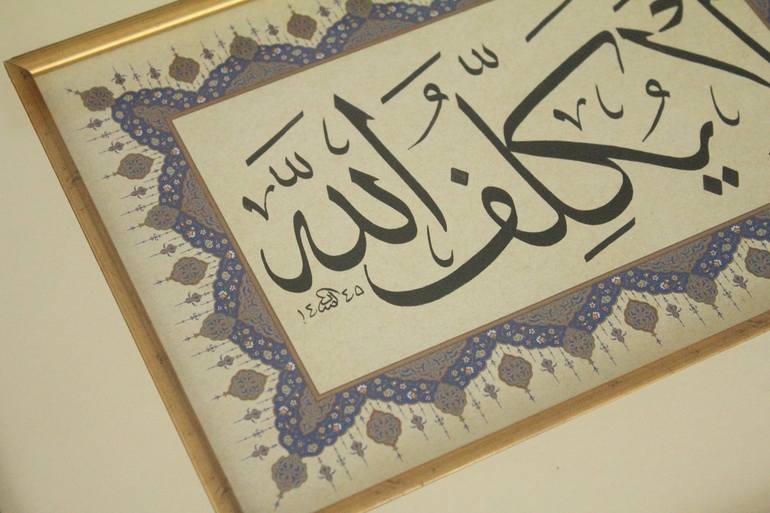 لَا يُكَلِّفُ اللّٰهُ
١٤٤٥